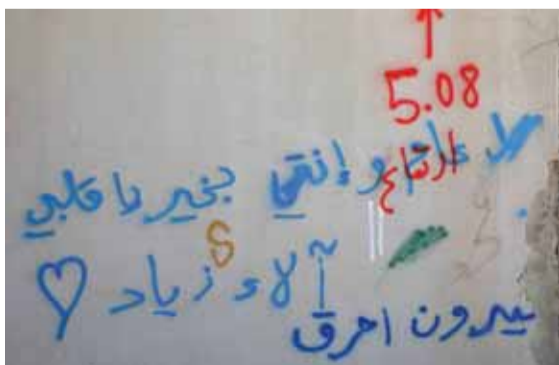 5.08
ارتفاع
وإنتي بخير يا قلبي
آلاء زياد
S
احرق